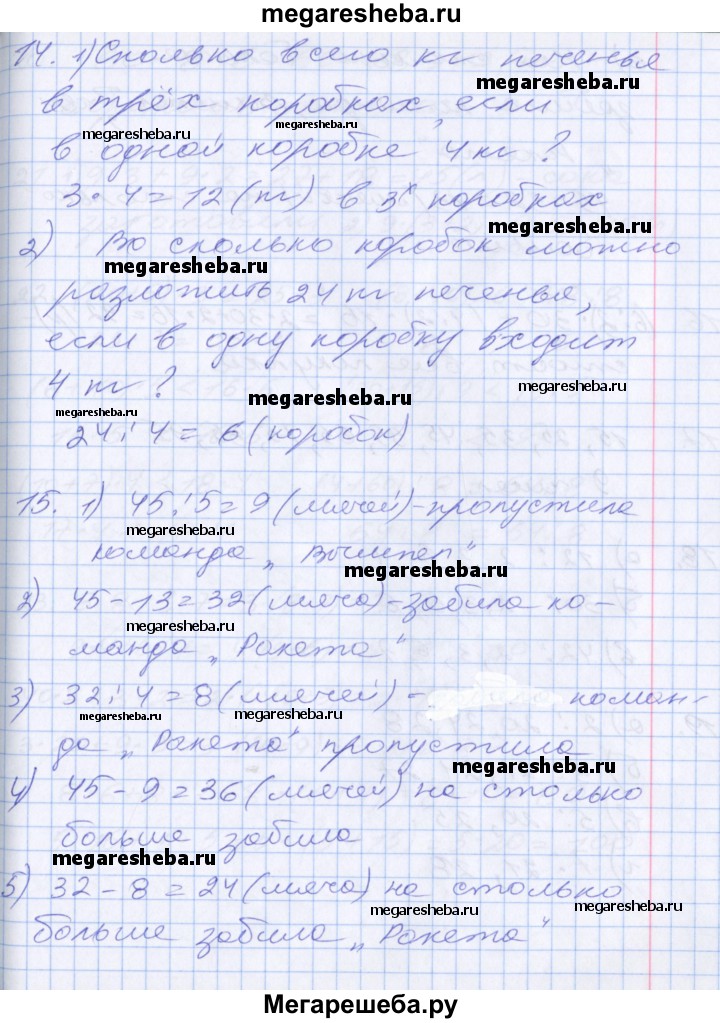 megaresheba.ru
14. 1) Сколько всего кг печенья
megaresheba.ru
в трёх коробках, если
megaresheba.ru
megaresheba.ru
в одной коробке 4 кг?
3 · 4 = 12 (кг) в 3х коробках
megaresheba.ru
2) Во сколько коробок можно
megaresheba.ru
разложить 24 кг печенья,
если в одну коробку входит
4 кг?
megaresheba.ru
megaresheba.ru
megaresheba.ru
24 : 4 = 6 (коробок)
15. 1) 45 : 5 = 9 (мячей) - пропустила
megaresheba.ru
команда „Вымпел"
megaresheba.ru
2) 45 - 13 = 32 (мяча) - забила ко-
megaresheba.ru
манда „Ракета"
3) 32 : 4 = 8 (мячей) - коман-
megaresheba.ru
megaresheba.ru
да „Ракета" пропустила
megaresheba.ru
4) 45 - 9 = 36 (мячей) на столько
больше забила
megaresheba.ru
5) 32 - 8 = 24 (мяча) на столько
megaresheba.ru
megaresheba.ru
больше забила „Ракета"
Мегарешеба.ру